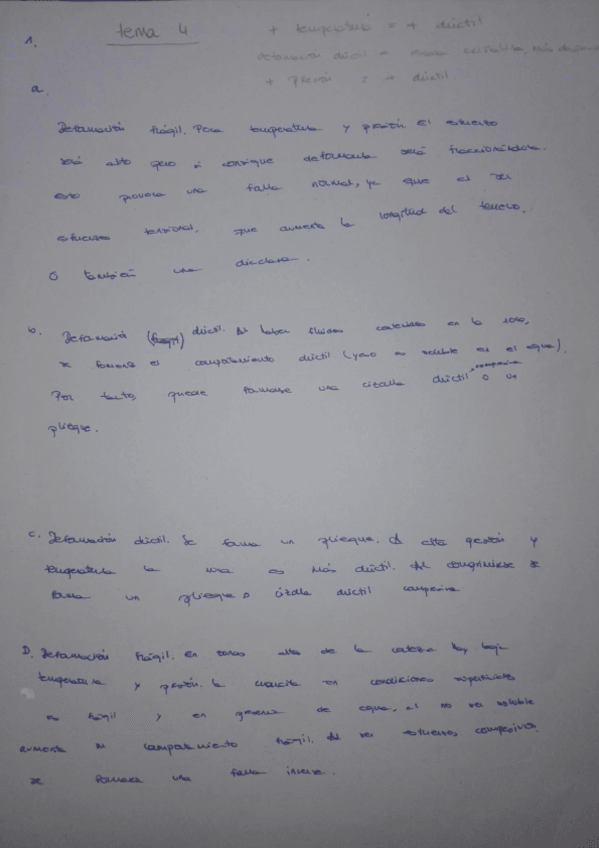 tema 4
+ temperatura = + dúctil
+ Presión = + dúctil
1.
a.
Deformación frágil. Poca temperatura y presión. El esfuerzo
será alto pero si consigue deformarla será fraccionándola.
esto provoca una falla normal, ya que al ser
esfuerzo tensional, que aumenta la longitud del terreno.
O también una diaclasa.
b. Deformación (frágil) dúctil. Al haber fluidos contenidos en la roca,
se fomenta el comportamiento dúctil (yeso es soluble en el agua).
Por tanto, puede formarse una cizalla dúctil compresiva o un
pliegue.
c. Deformación dúctil. Se forma un pliegue. A alta presión y
temperatura la roca es más dúctil. Al comprimirse se
forma un pliegue o cizalla dúctil compresiva
D. Deformación frágil. En zonas altas de la corteza hay baja
temperatura y presión. la cuarcita en condiciones superficiales
es frágil y en presencia de agua, al no ser soluble
aumenta su comportamiento frágil. Al ser esfuerzos compresivos
se formará una falla inversa.